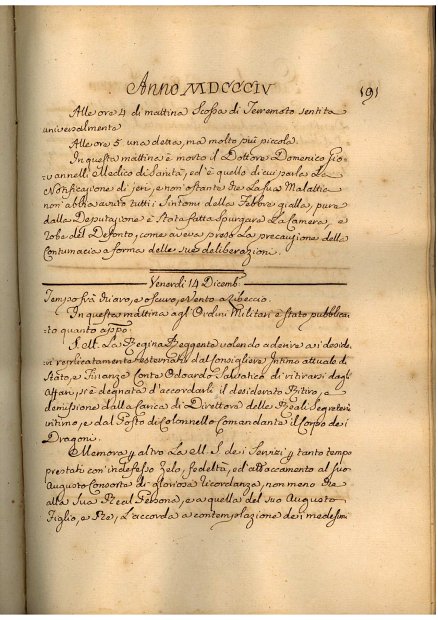 Anno MDCCCIV
191
Alle ore 4 di mattina Scossa di Terremoto sentita
universalmente
Alle ore 5 una detta, ma molto più piccola.
In questa mattina è morto il Dottore Domenico Gio-
vannelli Medico di Sanità, ed è quello di cui parla La
Notificazione di jeri, e non ostante che La sua Malattia
non abbia avuto tutti i Sintomi della Febbre gialla, pure
dalla Deputazione è Stata fatta Spurgare La Camera, e
robe del Defonto, come aveva preso La precauzione della
Contumacia a forma delle sue deliberazioni.
Venerdì 14 Dicemb:
Tempo frà chiaro, e oscuro, e Vento a Libeccio.
In questa mattina agl'Ordini Militari è stato pubblica-
to quanto app:o
S. M. La Regina Reggente volendo aderire ai deside-
ri replicatamente esternati dal Consigliere Intimo attuale di
Stato, e Finanze Conte Odoardo Salvatico di ritirarsi dagli
Affari, si è degnata d'accordarli il desiderato Ritiro, e
demissione dalla Carica di Direttore delle Reali Segreterie
intime, e dal Posto di Colonnello Comandante il Corpo dei
Dragoni.
Memore p altro La M. S. dei Servizi p tanto tempo
prestati con indefesso Zelo, fedeltà, ed attaccamento al suo
Augusto Consorte di gloriosa ricordanza, non meno che
alla Sua Real Persona, e a quella del suo Augusto
Figlio, e Re, L'accorda a contemplazione dei medesimi